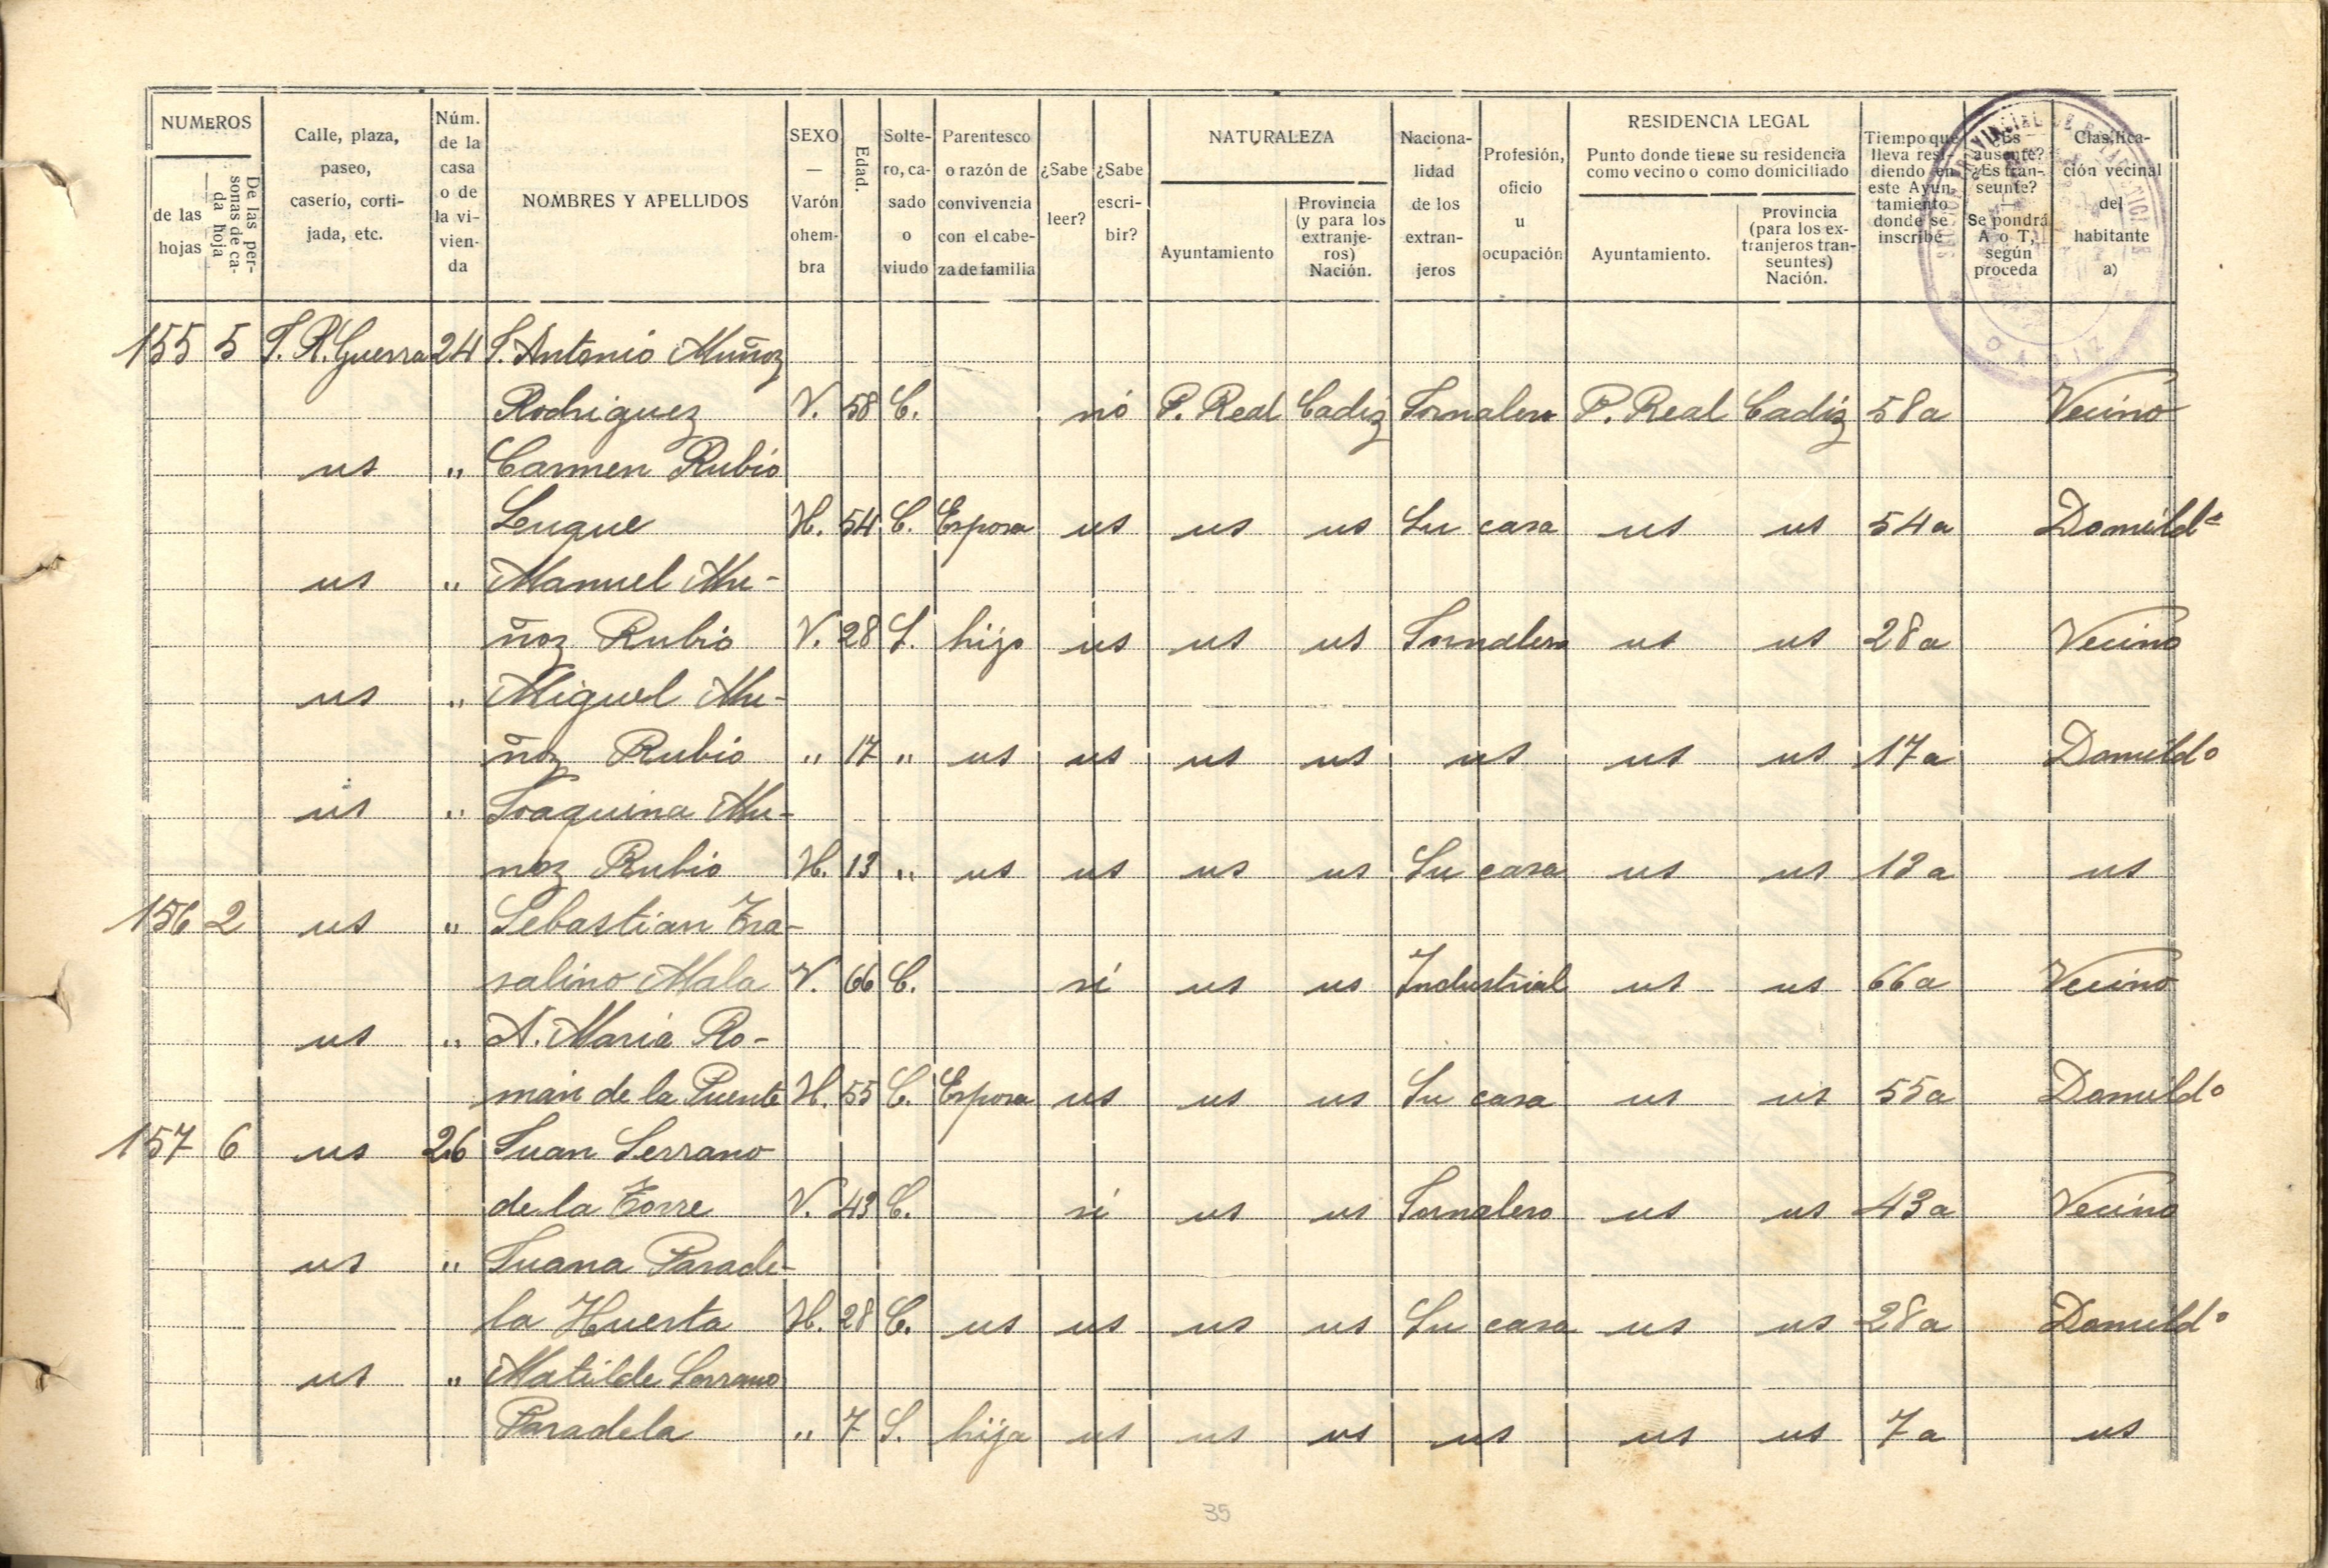 NUMEROS
de las hojas
De las personas de cada hoja
Calle, plaza, paseo, caserío, cortijada, etc.
Núm. de la casa o de la vivienda
NOMBRES Y APELLIDOS
SEXO — Varón o hembra
Edad.
Soltero, casado o viudo
Parentesco o razón de convivencia con el cabeza de familia
¿Sabe leer?
¿Sabe escribir?
NATURALEZA
Ayuntamiento
Provincia (y para los extranjeros) Nación.
Nacionalidad de los extranjeros
Profesión, oficio u ocupación
RESIDENCIA LEGAL
Punto donde tiene su residencia como vecino o como domiciliado
Ayuntamiento.
Provincia (para los extranjeros transeuntes) Nación.
Tiempo que lleva residiendo en este Ayuntamiento donde se inscribe
¿Es ausente? ¿Es transeunte? — Se pondrá A o T, según proceda
Clasificación vecinal del habitante a)
CADIZ
155 5 J. R. Guerra 24 J. Antonio Muñoz
Rodriguez V. 58 C. nó P. Real Cadiz Jornalero P. Real Cadiz 58a Vecino
us " Carmen Rubio
Luque H. 54 C. Esposa us us us Su casa us us 54a Domildª
us " Manuel Mu-
ñoz Rubio V. 28 S. hijo us us us Jornalero us us 28a Vecino
us " Miguel Mu-
ñoz Rubio " 17 " us us us us us us us 17a Domildº
us " Joaquina Mu-
noz Rubio H. 13 " us us us us Su casa us us 13a us
156 2 us " Sebastian Tra-
salino Mala V. 66 C. sí us us Industrial us us 66a Vecino
us " A. Maria Ro-
mán de la Puente H. 55 C. Esposa us us us Su casa us us 55a Domildº
157 6 us 26 Juan Serrano
de la Torre V. 43 C. sí us us Jornalero us us 43a Vecino
us " Juana Parade-
la Huerta H. 28 C. us us us us Su casa us us 28a Domildº
us " Matilde Serrano
Paradela " 7 S. hija us us us us us us 7a us
35